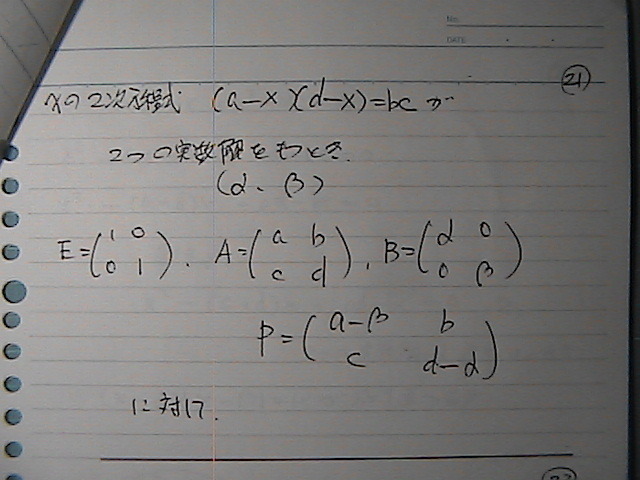 No.
DATE
㉑
xの2次方程式 (a-x)(d-x)=bc が
2つの実数解をもつとき.
(α、β)
E=(1 0 0 1), A=(a b c d), B=(α 0 0 β)
P=(a-β b c d-α)
に対して.